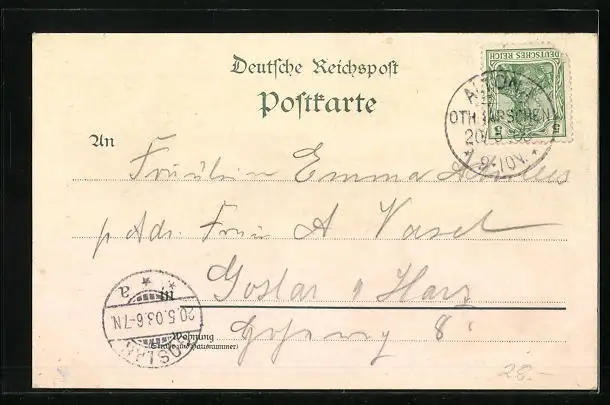 Deutsche Reichspost
Postkarte
DEUTSCHES REICH
5 5
ALTONA
OTHMARSCHEN
20.5.
9-10V.
An
Fräulein Emma
p Adr. Frau A Vasel
in
Goslar a Harz
20.5.03.6-7N.
* * a
GOSLAR
Wohnung
(Straße und Hausnummer)
8
28.-